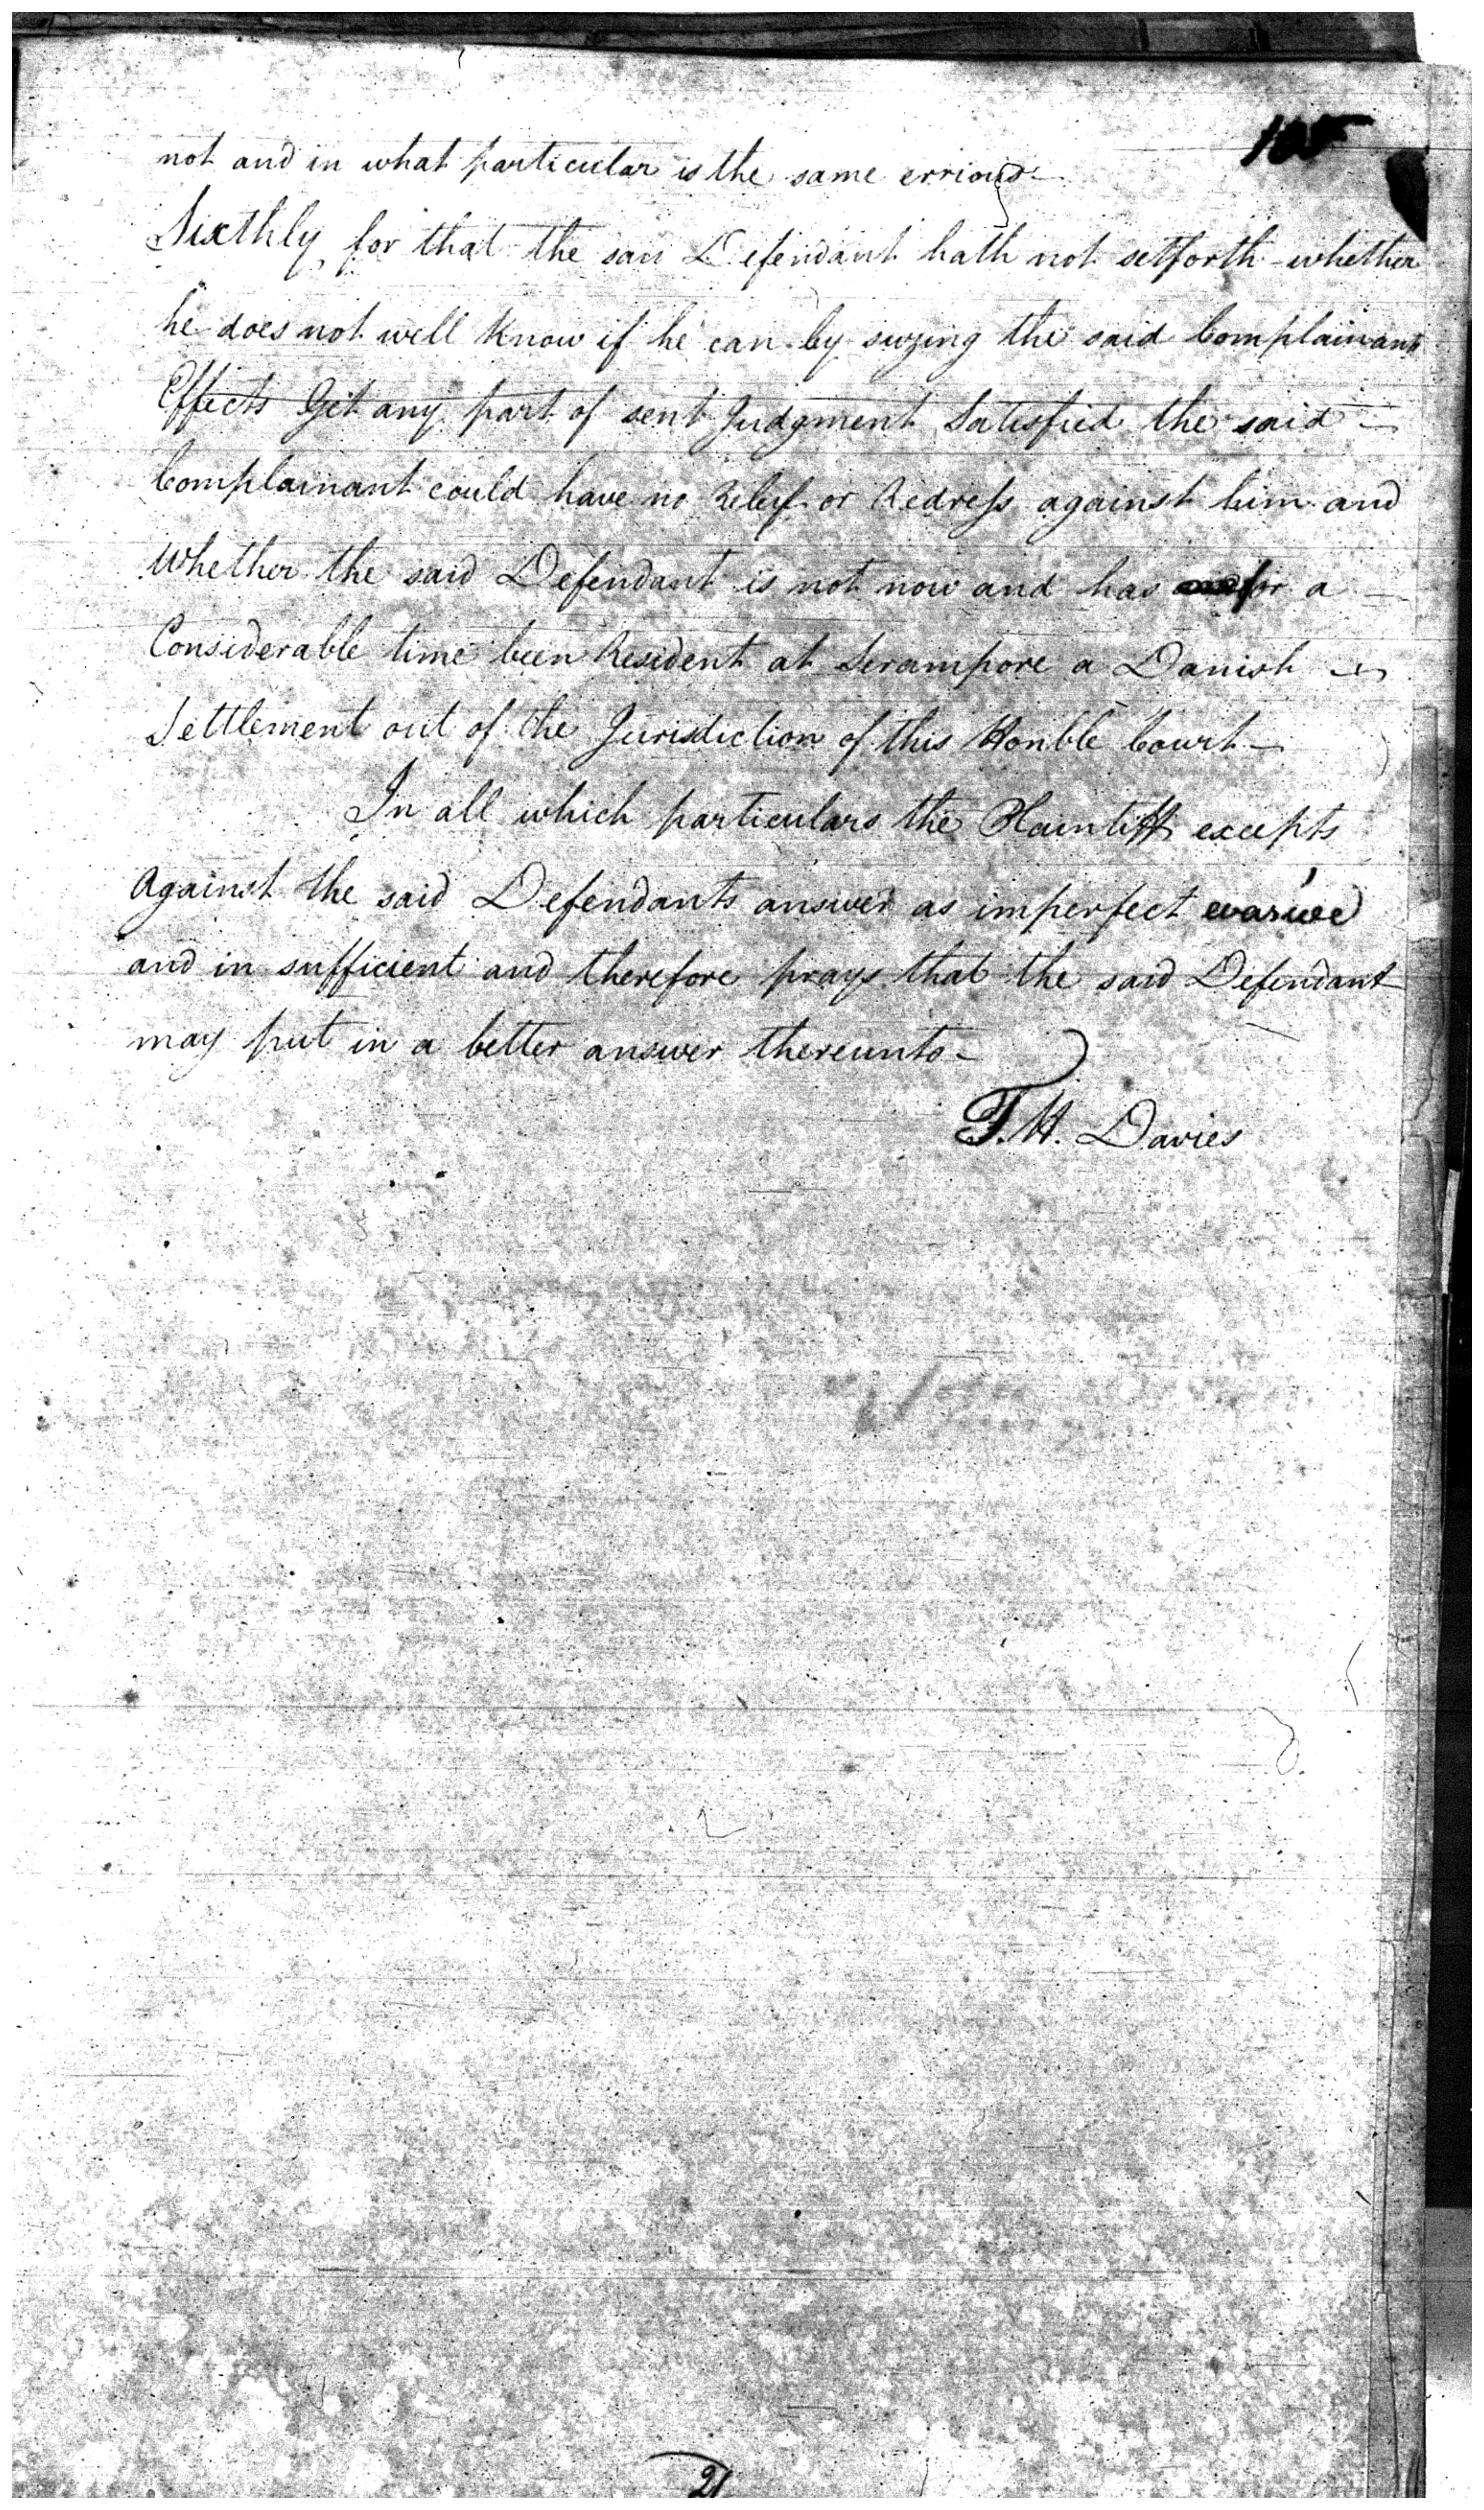 105
not and in what particular is the same errious
Sixthly for that the said Defendant hath not setforth whether
he does not well know if he can by siezing the said Complainants
Effects Get any part of sent Judgment Satisfied the said
Complainant could have no Relief or Redress against him and
Whether the said Defendant is not now and has for a
Considerable time been Resident at Serampore a Danish
Settlement out of the Jurisdiction of this Honble Court
In all which particulars the Plaintiff excepts
Against the said Defendants answer as imperfect evasive
and in sufficient and therefore prays that the said Defendant
may put in a better answer thereunto
T. H. Davies
21